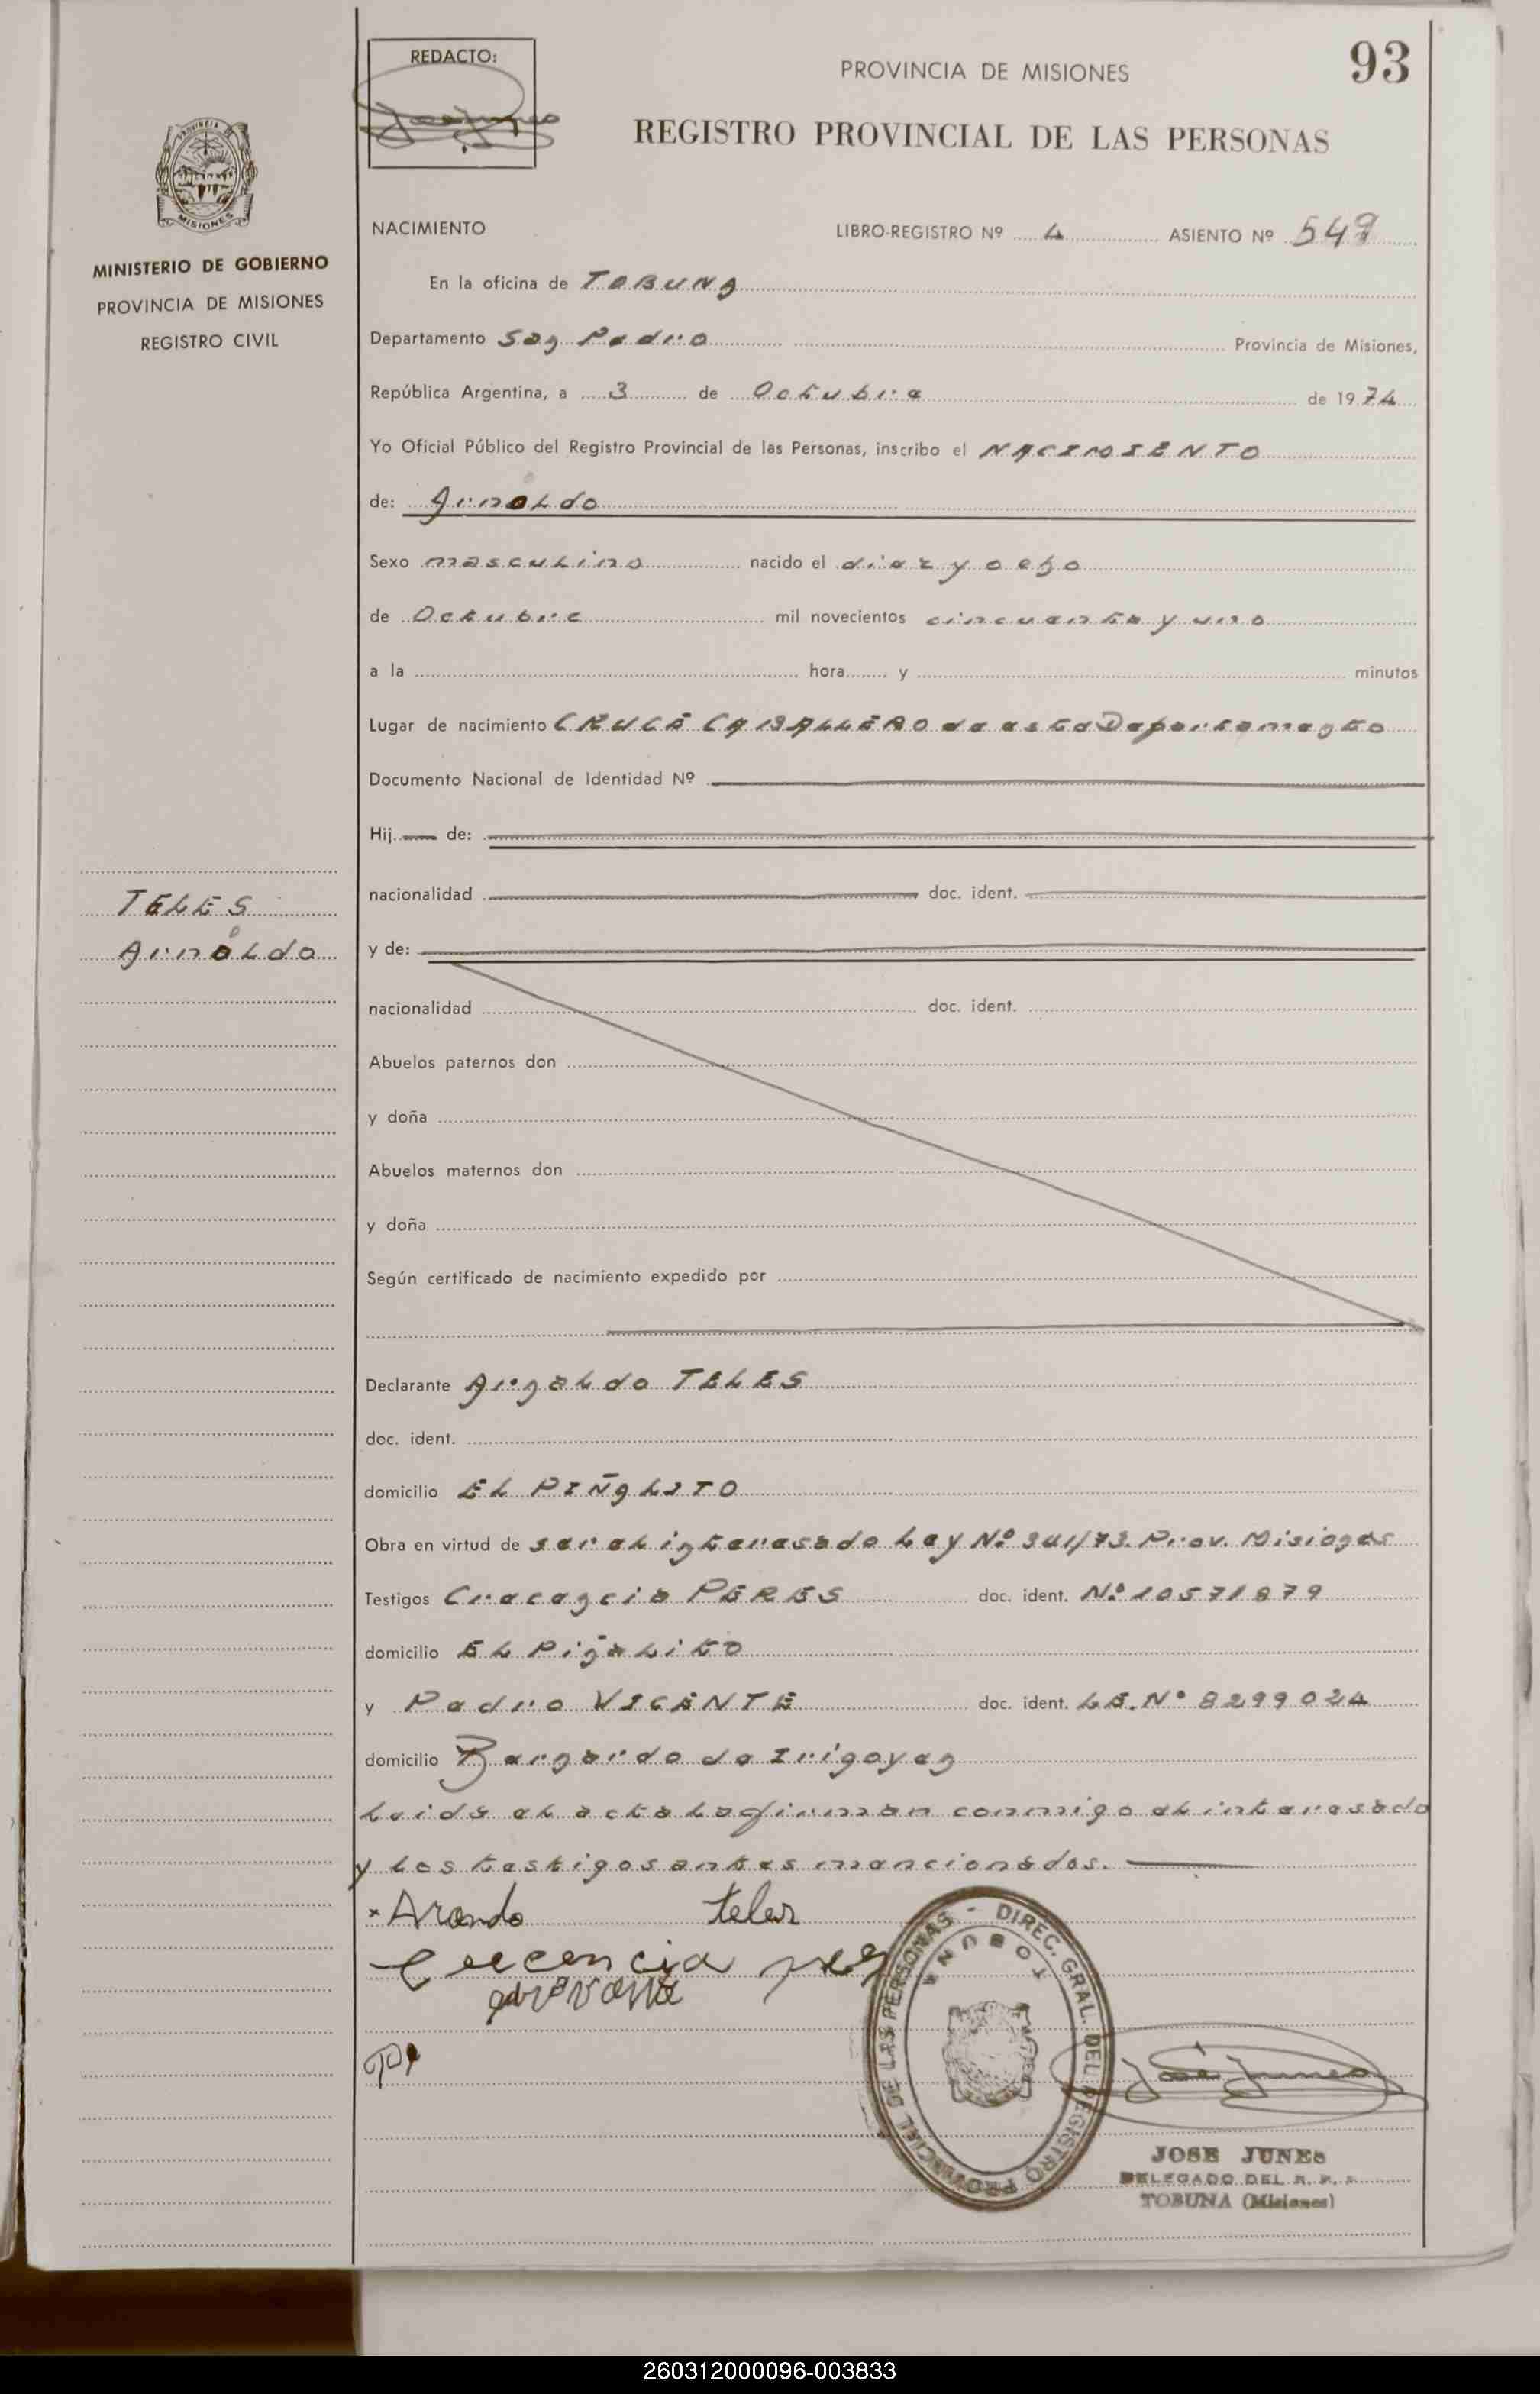 REDACTO:
PROVINCIA DE MISIONES
93
REGISTRO PROVINCIAL DE LAS PERSONAS
PROVINCIA DE
MISIONES
MINISTERIO DE GOBIERNO
PROVINCIA DE MISIONES
REGISTRO CIVIL
NACIMIENTO LIBRO-REGISTRO Nº 4 ASIENTO Nº 549
En la oficina de TOBUNA
Departamento San Pedro Provincia de Misiones,
República Argentina, a 3 de Octubre de 1974
Yo Oficial Público del Registro Provincial de las Personas, inscribo el NACIMIENTO
de: Arnoldo
Sexo masculino nacido el diez y ocho
de Octubre mil novecientos cincuenta y uno
a la hora y minutos
Lugar de nacimiento CRUCE CABALLERO de este Departamento
Documento Nacional de Identidad Nº
Hij de:
nacionalidad doc. ident.
y de:
TELES
Arnoldo
nacionalidad doc. ident.
Abuelos paternos don
y doña
Abuelos maternos don
y doña
Según certificado de nacimiento expedido por
Declarante Arnaldo TELES
doc. ident.
domicilio EL PIÑALITO
Obra en virtud de ser el interesado Ley Nº 341/73. Prov. Misiones
Testigos Crecencia PERES doc. ident. Nº 10571879
domicilio EL Piñalito
y Pedro VICENTE doc. ident. LE. Nº 8299024
domicilio Bernardo de Irigoyen
Leida el acta la firman conmigo el interesado
y los testigos antes mencionados.
Arando teles
Crecencia
DIREC. GRAL. DEL REGISTRO PROVINCIAL DE LAS PERSONAS -
TOBUNA
JOSE JUNES
DELEGADO DEL R. P. P.
TOBUNA (Misiones)
260312000096-003833